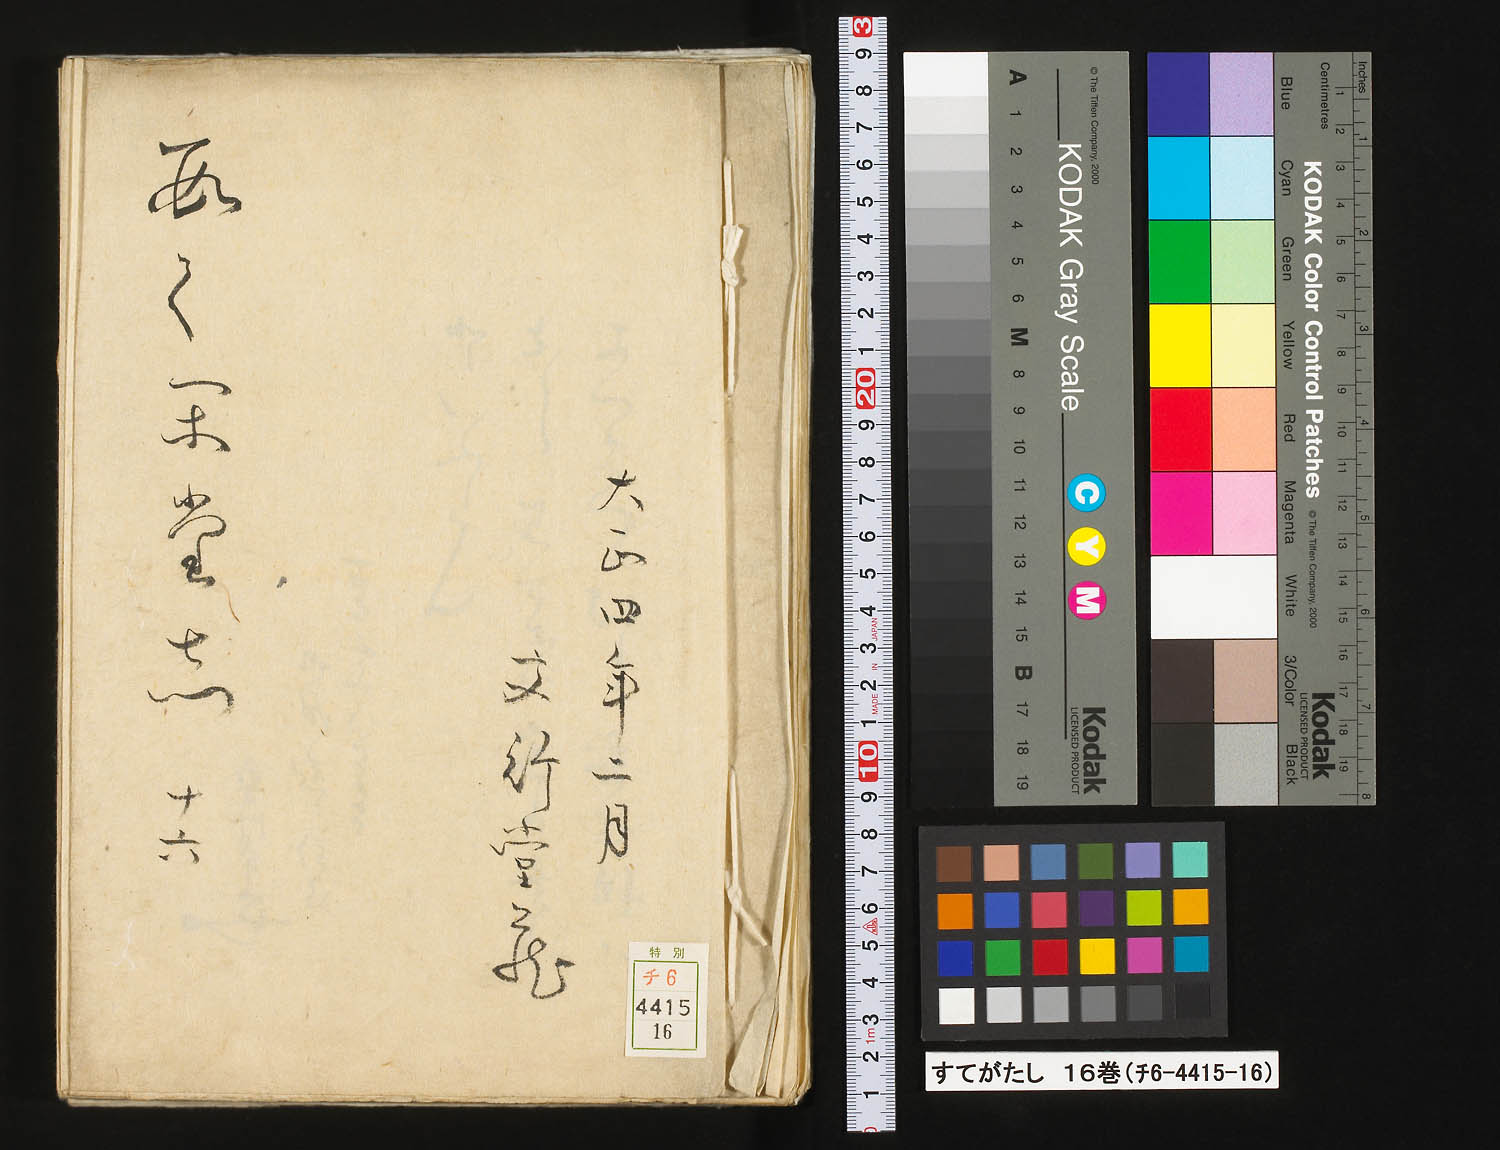 大正四年二月
文行堂蔵
堂志 十六
特別
チ6
4415
16
3
9
8
7
6
5
4
3
2
1
20
9
8
7
6
5
4
3
2
1
10
9
8
7
6
5
4
3
2
1
JAPAN
IN
MADE
1m
© The Tiffen Company, 2000
KODAK Gray Scale
C Y M
Kodak
LICENSED PRODUCT
A 1 2 3 4 5 6 M 8 9 10 11 12 13 14 15 B 17 18 19
Inches
1 2 3 4 5 6 7 8
Centimetres
1 2 3 4 5 6 7 8 9 10 11 12 13 14 15 16 17 18 19
KODAK Color Control Patches
© The Tiffen Company, 2000
Kodak
LICENSED PRODUCT
Blue Cyan Green Yellow Red Magenta White 3/Color Black
すてがたし 16巻(チ6-4415-16)